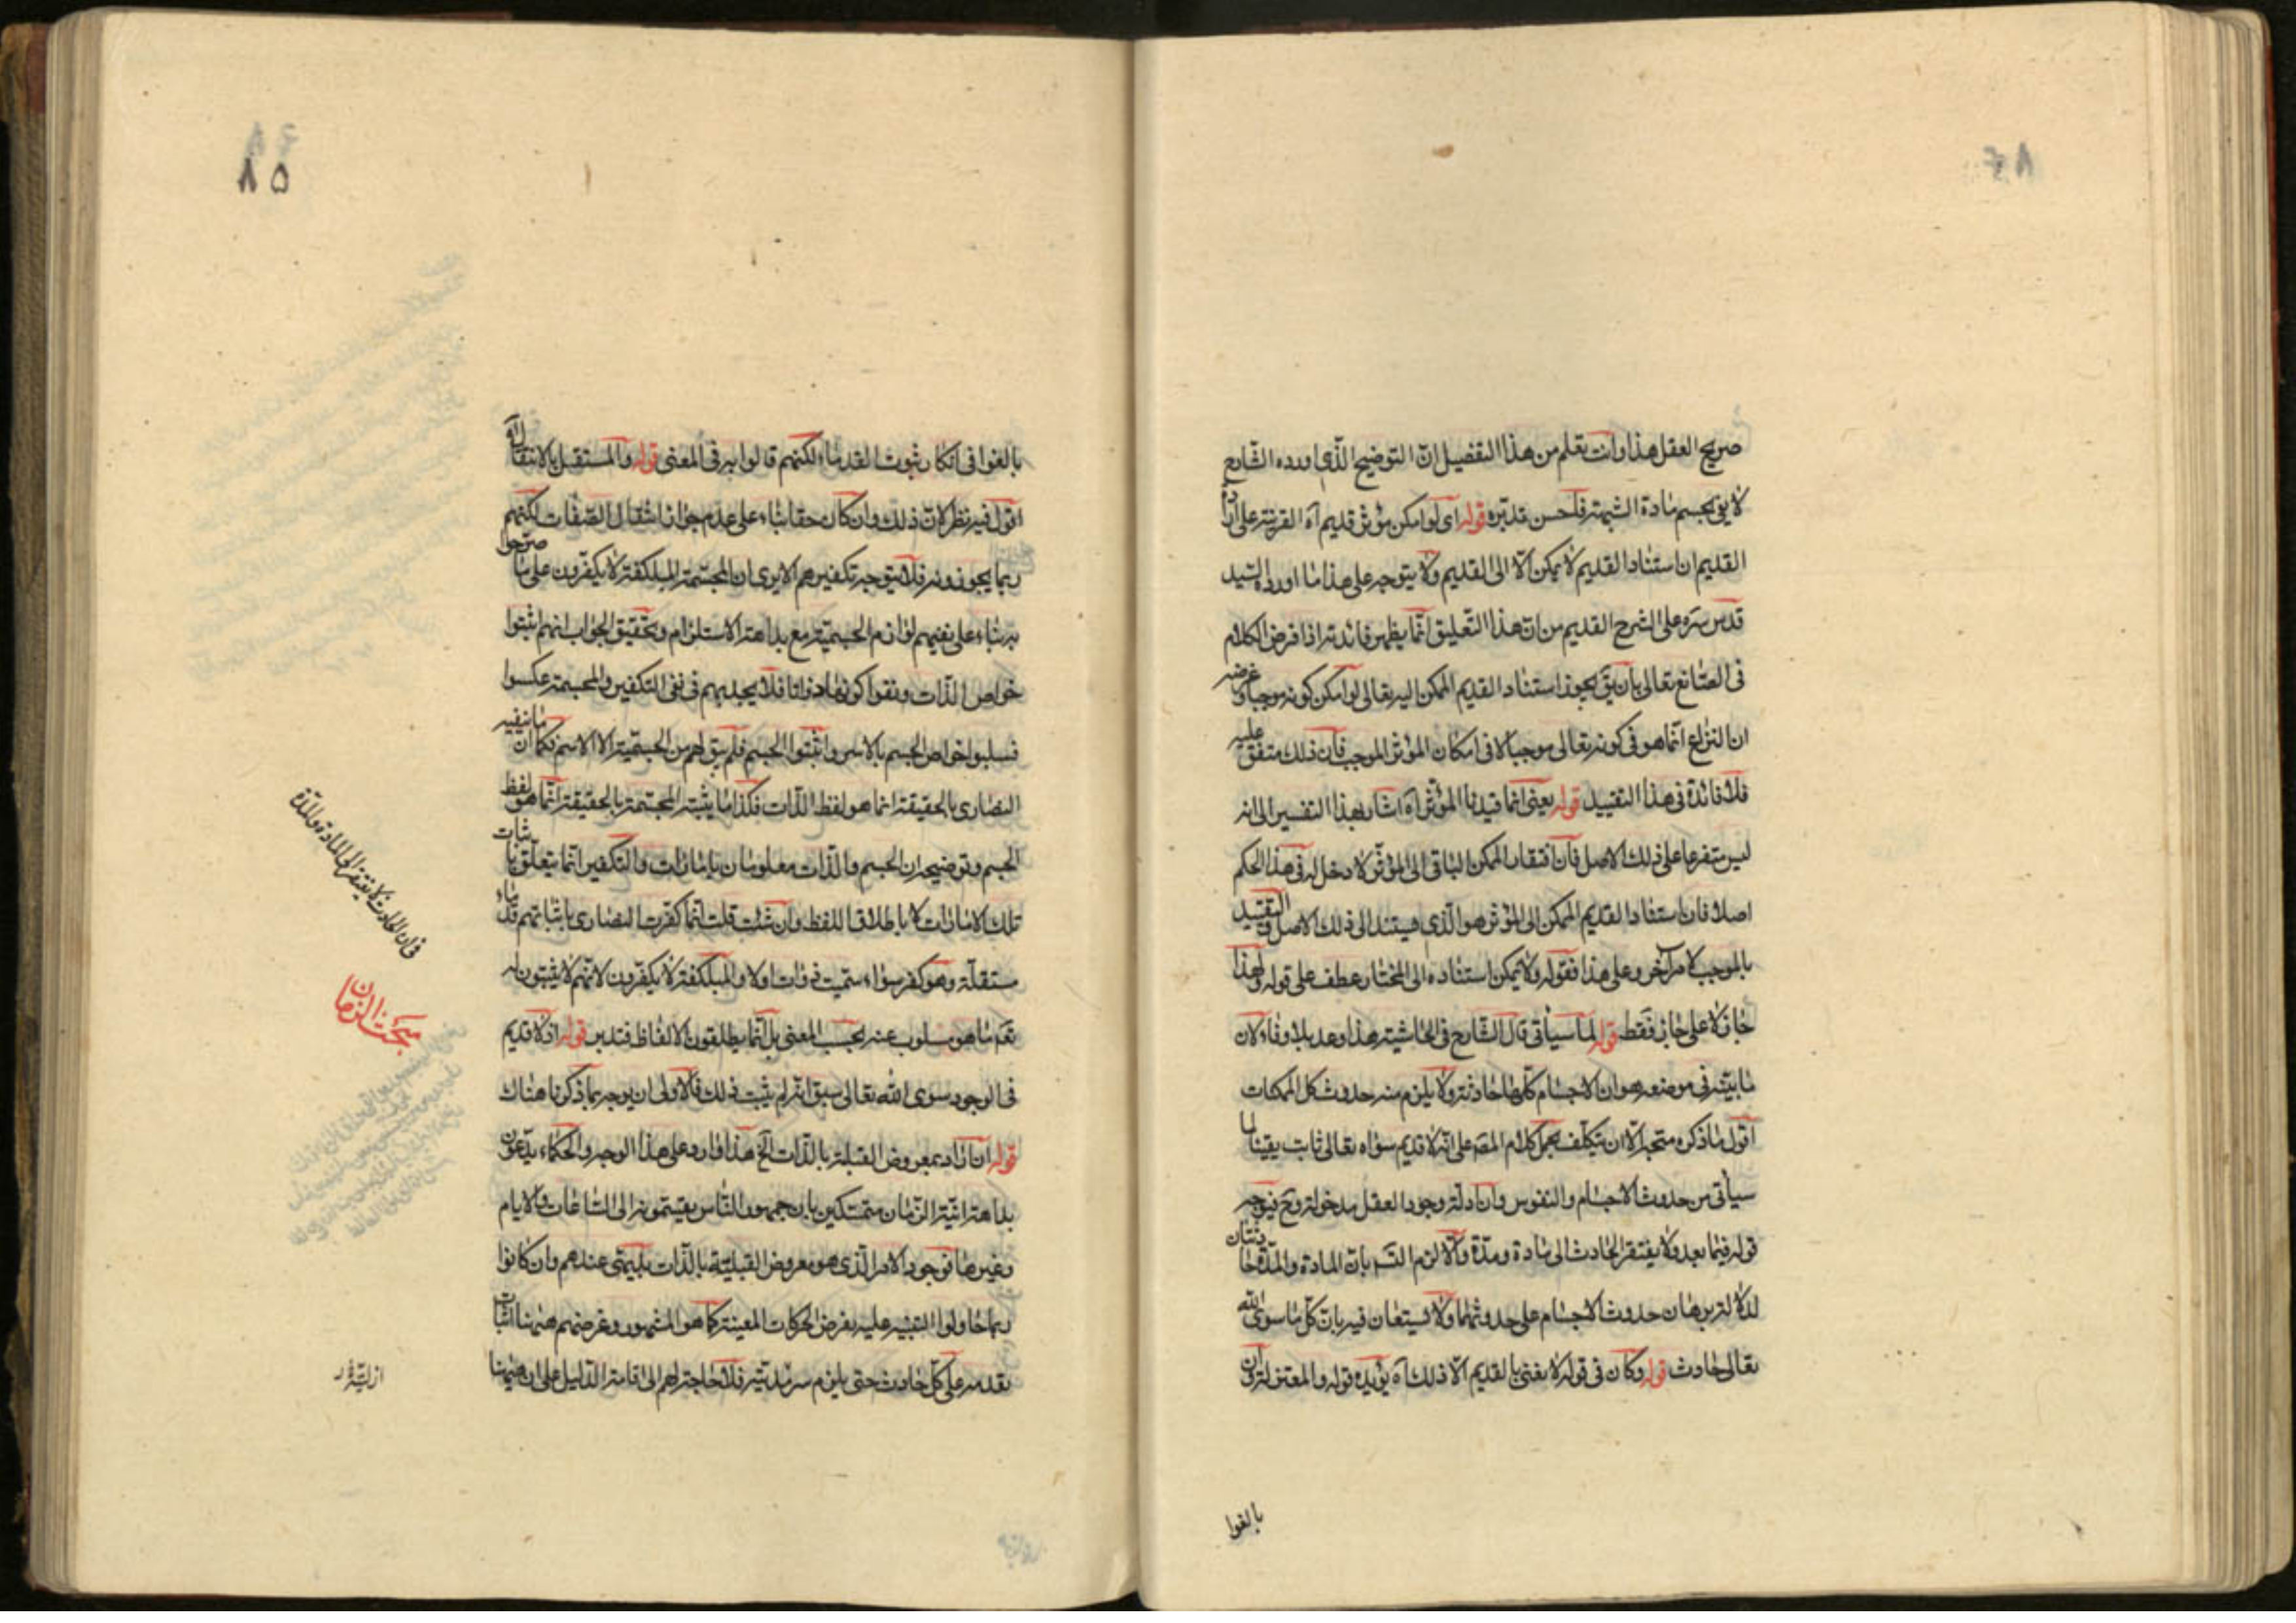 صريح العقل هذا وانت تعلم من هذا التفصيل انّ التوضيح الّذي اورده الشّارح
لا يق بحسم مادة الشبهة فلحسن تدبّره قوله اى لو امكن مؤثر قديم آه القرينة على ان
القديم ان استناد القديم لا يمكن الّا الى القديم ولا يتوجه على هذا ما اورده السّيد
قدس سرّه على الشرح القديم من ان هذا التعليق انّما يظهر فائدته اذا فرض الكلام
فى الصّانع تعالى بان يق يجوز استناد القديم الممكن اليه تعالى لو امكن كونه موجبا وغرضه
ان النزاع انّما هو فى كونه تعالى موجبا لا فى امكان المؤثر الموجب فان ذلك متفق عليه
فلا فائدة فى هذا التقييد قوله يعنى انما قيدنا المؤثر آه اشار بهذا التفسير الى انه
ليس متفرعا على ذلك الاصل فان افتقار الممكن الباقى الى المؤثّر لا دخل له فى هذا الحكم
اصلا فان استناد القديم الممكن الى المؤثر هو الّذي يستند الى ذلك الاصل والتقييد
بالموجب لامر آخر وعلى هذا فقوله ولا يمكن استناده الى المختار عطف على قوله ولهذا
جاز لا على جاز فقط قوله لما سيأتى قال الشّارح فى الحاشية هذا وعد بلا وفاء لان
ما بيّنه فى موضعه هو ان الاجسام كلّها حادثة ولا يلزم منه حدوث كل الممكنات
اقول ما ذكره متجه الّا ان يتكلّف بحمل كلام المصّ على انّه لا قديم سواه تعالى ثابت يقينا لما
سيأتى من حدوث الاجسام والنفوس وان ادلّة وجود العقل مدخولة وح فيوجه
قوله فيما بعد ولا يفتقر الحادث الى مادة ومدّة والّا لزم التسّ بان المادة والمدّة حادثتان
لدلالة برهان حدوث الاجسام على حدوثهما ولا يستعان فيه بان كل ما سوى الله
تعالى حادث قوله وكان فى قوله لا يعنى بالقديم الّا ذلك آه يؤيده قوله والمعتزلة وان
بالغوا
٨٥
بالغوا فى انكار ثبوت القدماء لكنهم قالوا به فى المعنى قوله والمستقبل بالانتقال آه
اقول فيه نظر لانّ ذلك وان كان حقا بناء على عدم جواز انتقال الصّفات لكنهم
ربما يجوزونه فلا يتوجه تكفيرهم الا يرى ان المجسّمة المبلكفة لا يكفّرون على ما صرّحوا
به بناء على نفيهم لوازم الجسميّة مع بداهة الاستلزام وتحقيق الجواب انهم اثبتوا
خواص الذّات ونفوا كونها ذواتا فلا يجديهم فى نفى التكفير والمجسمة عكسوا
فسلبوا خواص الجسم بالاسر واثبتوا الجسم فلم يبق لهم من الجسميّة الا الاسم فكما ان ما ينفيه
النصارى بالحقيقة انما هو لفظ الذّات فكذا ما يثبته المجسّمة بالحقيقة انّما هو لفظ
الجسم وتوضيحه ان الجسم والذّات معلومان باماراتٍ والتكفير انّما يتعلّق باثبات
تلك الامارات لا باطلاق اللفظ وان شئت قلت انّما كفّرت النصارى باثباتهم قدماء
مستقلّة وهو كفر سواء سمّيت ذوات اولا والمبلكفة لا يكفّرون لانّهم لا يثبتون له
تعّ ما هو مسلوب عنه بحسب المعنى بل انّما يطلقون الالفاظ فتدبر قوله اذ لا قديم
فى الوجود سوى الله تعالى سبق انّه لم يثبت ذلك فالاولى ان يوجه بما ذكرنا هناك
قوله ان اراد بمعروض القبلية بالذّات آلخ هذا وارد على هذا الوجه والحكماء يدّعون
بداهة انيّة الزّمان متمسّكين بان جمهور النّاس يقسّمونه الى السّاعات والايام
وغيرها فوجود الامر الّذي هو معروض القبليّة بالذّات بديهىّ عندهم وان كانوا
ربما حاولوا التنبيه عليه بفرض الحركات المعينة كما هو المشهور وغرضهم ههنا اثبات
تقدمه على كلّ حادث حتى يلزم سرمديّته فلا حاجة لهم الى اقامة الدّليل على ان ههنا
فى ان الحادث لا يفتقر الى المادة والمدّة
مبحث الزمان